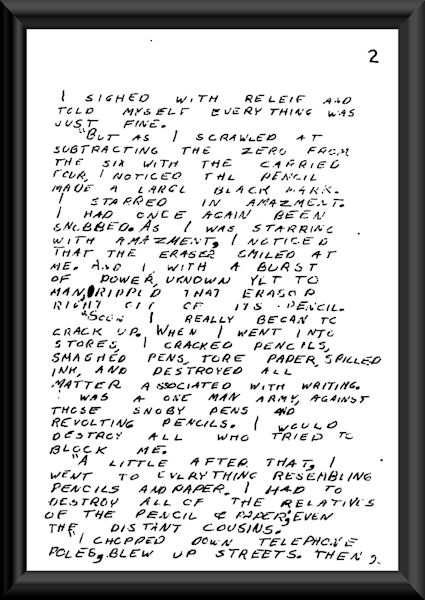 2
I SIGHED WITH RELEIF AND
TOLD MYSELF EVERYTHING WAS
JUST FINE.
"BUT AS I SCRAWLED AT
SUBTRACTING THE ZERO FROM
THE SIX WITH THE CARRIED
FOUR, I NOTICED THE PENCIL
MADE A LARGE BLACK MARK.
I STARRED IN AMAZMENT.
I HAD ONCE AGAIN BEEN
SNOBBED. AS I WAS STARRING
WITH AMAZMENT, I NOTICED
THAT THE ERASER SMILED AT
ME. AND I WITH A BURST
OF POWER, UKNOWN YET TO
MAN, RIPPED THAT ERASER
RIGHT OFF OF ITS PENCIL.
"SOON I REALLY BEGAN TO
CRACK UP. WHEN I WENT INTO
STORES, I CRACKED PENCILS,
SMASHED PENS, TORE PAPER, SPILLED
INK, AND DESTROYED ALL
MATTER ASSOCIATED WITH WRITING.
I WAS A ONE MAN ARMY, AGAINST
THOSE SNOBY PENS AND
REVOLTING PENCILS. I WOULD
DESTROY ALL WHO TRIED TO
BLOCK ME.
"A LITTLE AFTER THAT, I
WENT TO EVERYTHING RESEMBLING
PENCILS AND PAPER. I HAD TO
DESTROY ALL OF THE RELATIVES
OF THE PENCIL & PAPER, EVEN
THE DISTANT COUSINS.
"I CHOPPED DOWN TELEPHONE
POLES, BLEW UP STREETS. THEN